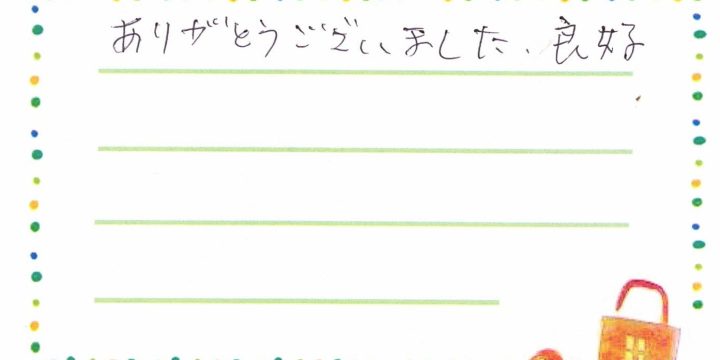 ありがとうございました、良好